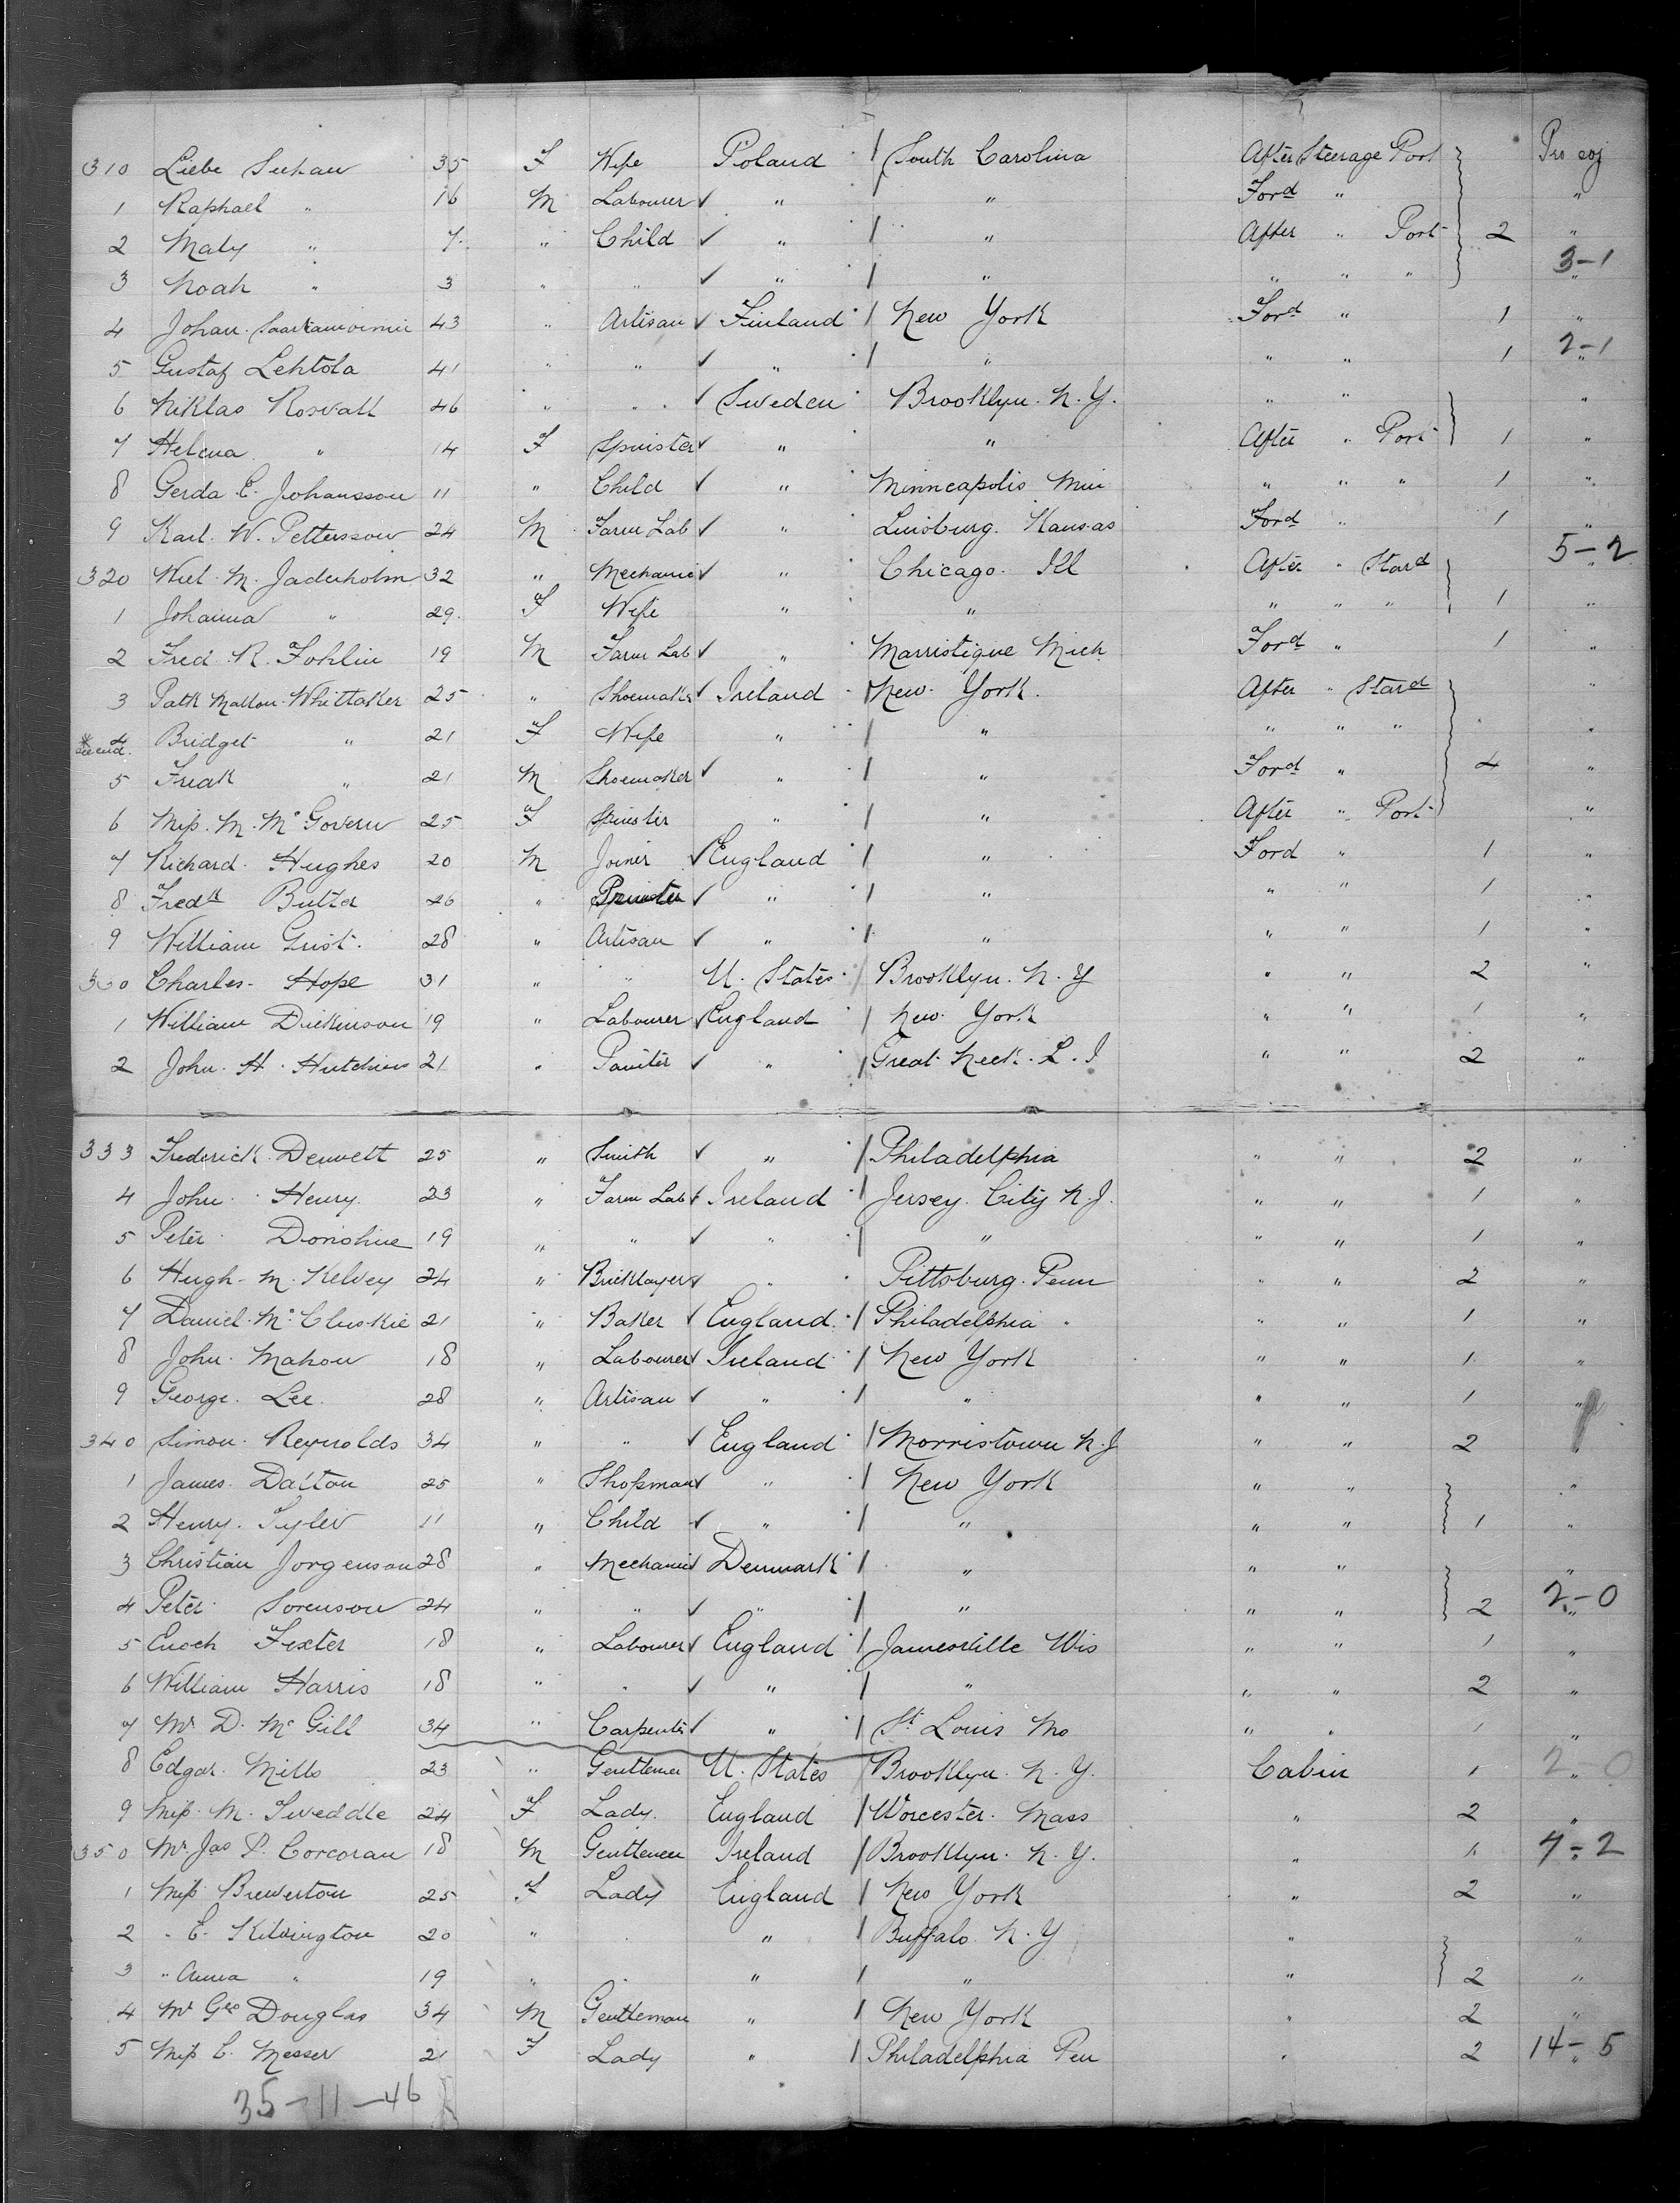 310 Liebe Suchau 35 F Wife Poland / South Carolina After Steerage Port Pro
1 Raphael " 16 M Labourer ✓ " " Ford " "
2 Maly " 7 " Child ✓ " / " After " Port 2 "
3 Noah " 3 " " ✓ " / " " " " 3-1 "
4 Johan 43 " Artisan ✓ Finland / New York Ford " 1 "
5 Gustaf Lehtola 41 " " ✓ " / " " " 1 2-1 "
6 Niklas Rosvall 46 " " ✓ Sweden Brooklyn. N. Y. " " "
7 Helena " 14 F Spinster ✓ " " After " Port 1 "
8 Gerda C. Johansson 11 " Child ✓ " Minneapolis Min " " " 1 "
9 Karl. W. Pettersson 24 M Farm Lab ✓ " Kansas Ford " 1 "
320 M. Jaderholm 32 " Mechanic ✓ " Chicago. Ill After " Stard 5-2 "
1 Johanna " 29 F Wife " " " " " 1 "
2 Fred. R. Fohlin 19 M Farm Lab ✓ " Marristique Mich Ford " 1 "
3 Patk Mallon Whittaker 25 " Shoemaker ✓ Ireland / New York. After " Stard "
* see end. 4 Bridget " 21 F Wife " / " " " " "
5 Frank " 21 M Shoemaker ✓ " / " Ford " 4 "
6 Miss. M. Mc Govern 25 F Spinster " / " After " Port "
7 Richard. Hughes 20 M Joiner ✓ England / " Ford " 1 "
8 Fredk 26 " Printer ✓ " / " " " 1 "
9 William Grist. 28 " Artisan ✓ " / " " " 1 "
330 Charles. Hope 31 " " U. States / Brooklyn. N. Y " " 2 "
1 William Dickinson 19 " Labourer ✓ England / New York " " 1 "
2 John. H. Hutchins 21 " Painter ✓ " / Great Neck. L. I " " 2 "
333 Frederick. Dennett 25 " Smith ✓ " / Philadelphia " " 2 "
4 John. Henry. 23 " Farm Lab ✓ Ireland / Jersey. City N. J. " " 1 "
5 Peter Donohue 19 " " ✓ " / " " " 1 "
6 Hugh. M. Kelvey 24 " Bricklayer ✓ " Pittsburg. Penn " " 2 "
7 Daniel. Mc Cluskie 21 " Baker ✓ England / Philadelphia " " 1 "
8 John. Mahon 18 " Labourer ✓ Ireland / New York " " 1 "
9 George. Lee. 28 " Artisan ✓ " / " " " 1 "
340 Simon. Reynolds 34 " " ✓ England / Morristown N. J " " 2 "
1 James. Dalton 25 " Shopman ✓ " / New York " " "
2 Henry. Tyler 11 " Child ✓ " / " " " 1 "
3 Christian Jorgenson 28 " Mechanic ✓ Denmark / " " " "
4 Peter. Sorenson 24 " " ✓ " / " " " 2 2-0 "
5 Enoch Fexter 18 " Labourer ✓ England / Janesville Wis " " 1 "
6 William Harris 18 " " ✓ " / " " " 2 "
7 Mr D. Mc Gill 34 " Carpenter ✓ " / St Louis Mo " " 1 "
8 Edgar. Mills 23 " Gentleman U. States / Brooklyn. N. Y. Cabin 1 2-0 "
9 Miss. M. Tweddle 24 F Lady. England / Worcester. Mass " 2 "
350 Mr. Jas P. Corcoran 18 M Gentleman Ireland / Brooklyn. N. Y. " 1 7-2 "
1 Miss Brewerton 25 F Lady England / New York " 2 "
2 " E. Kilvington 20 " " " / Buffalo. N. Y " "
3 " Anna " 19 " " " / " " 2 "
4 Mr Geo Douglas 34 M Gentleman " / New York " 2 "
5 Miss E. Messer 21 F Lady " / Philadelphia Pen " 2 14-5 "
35-11-46